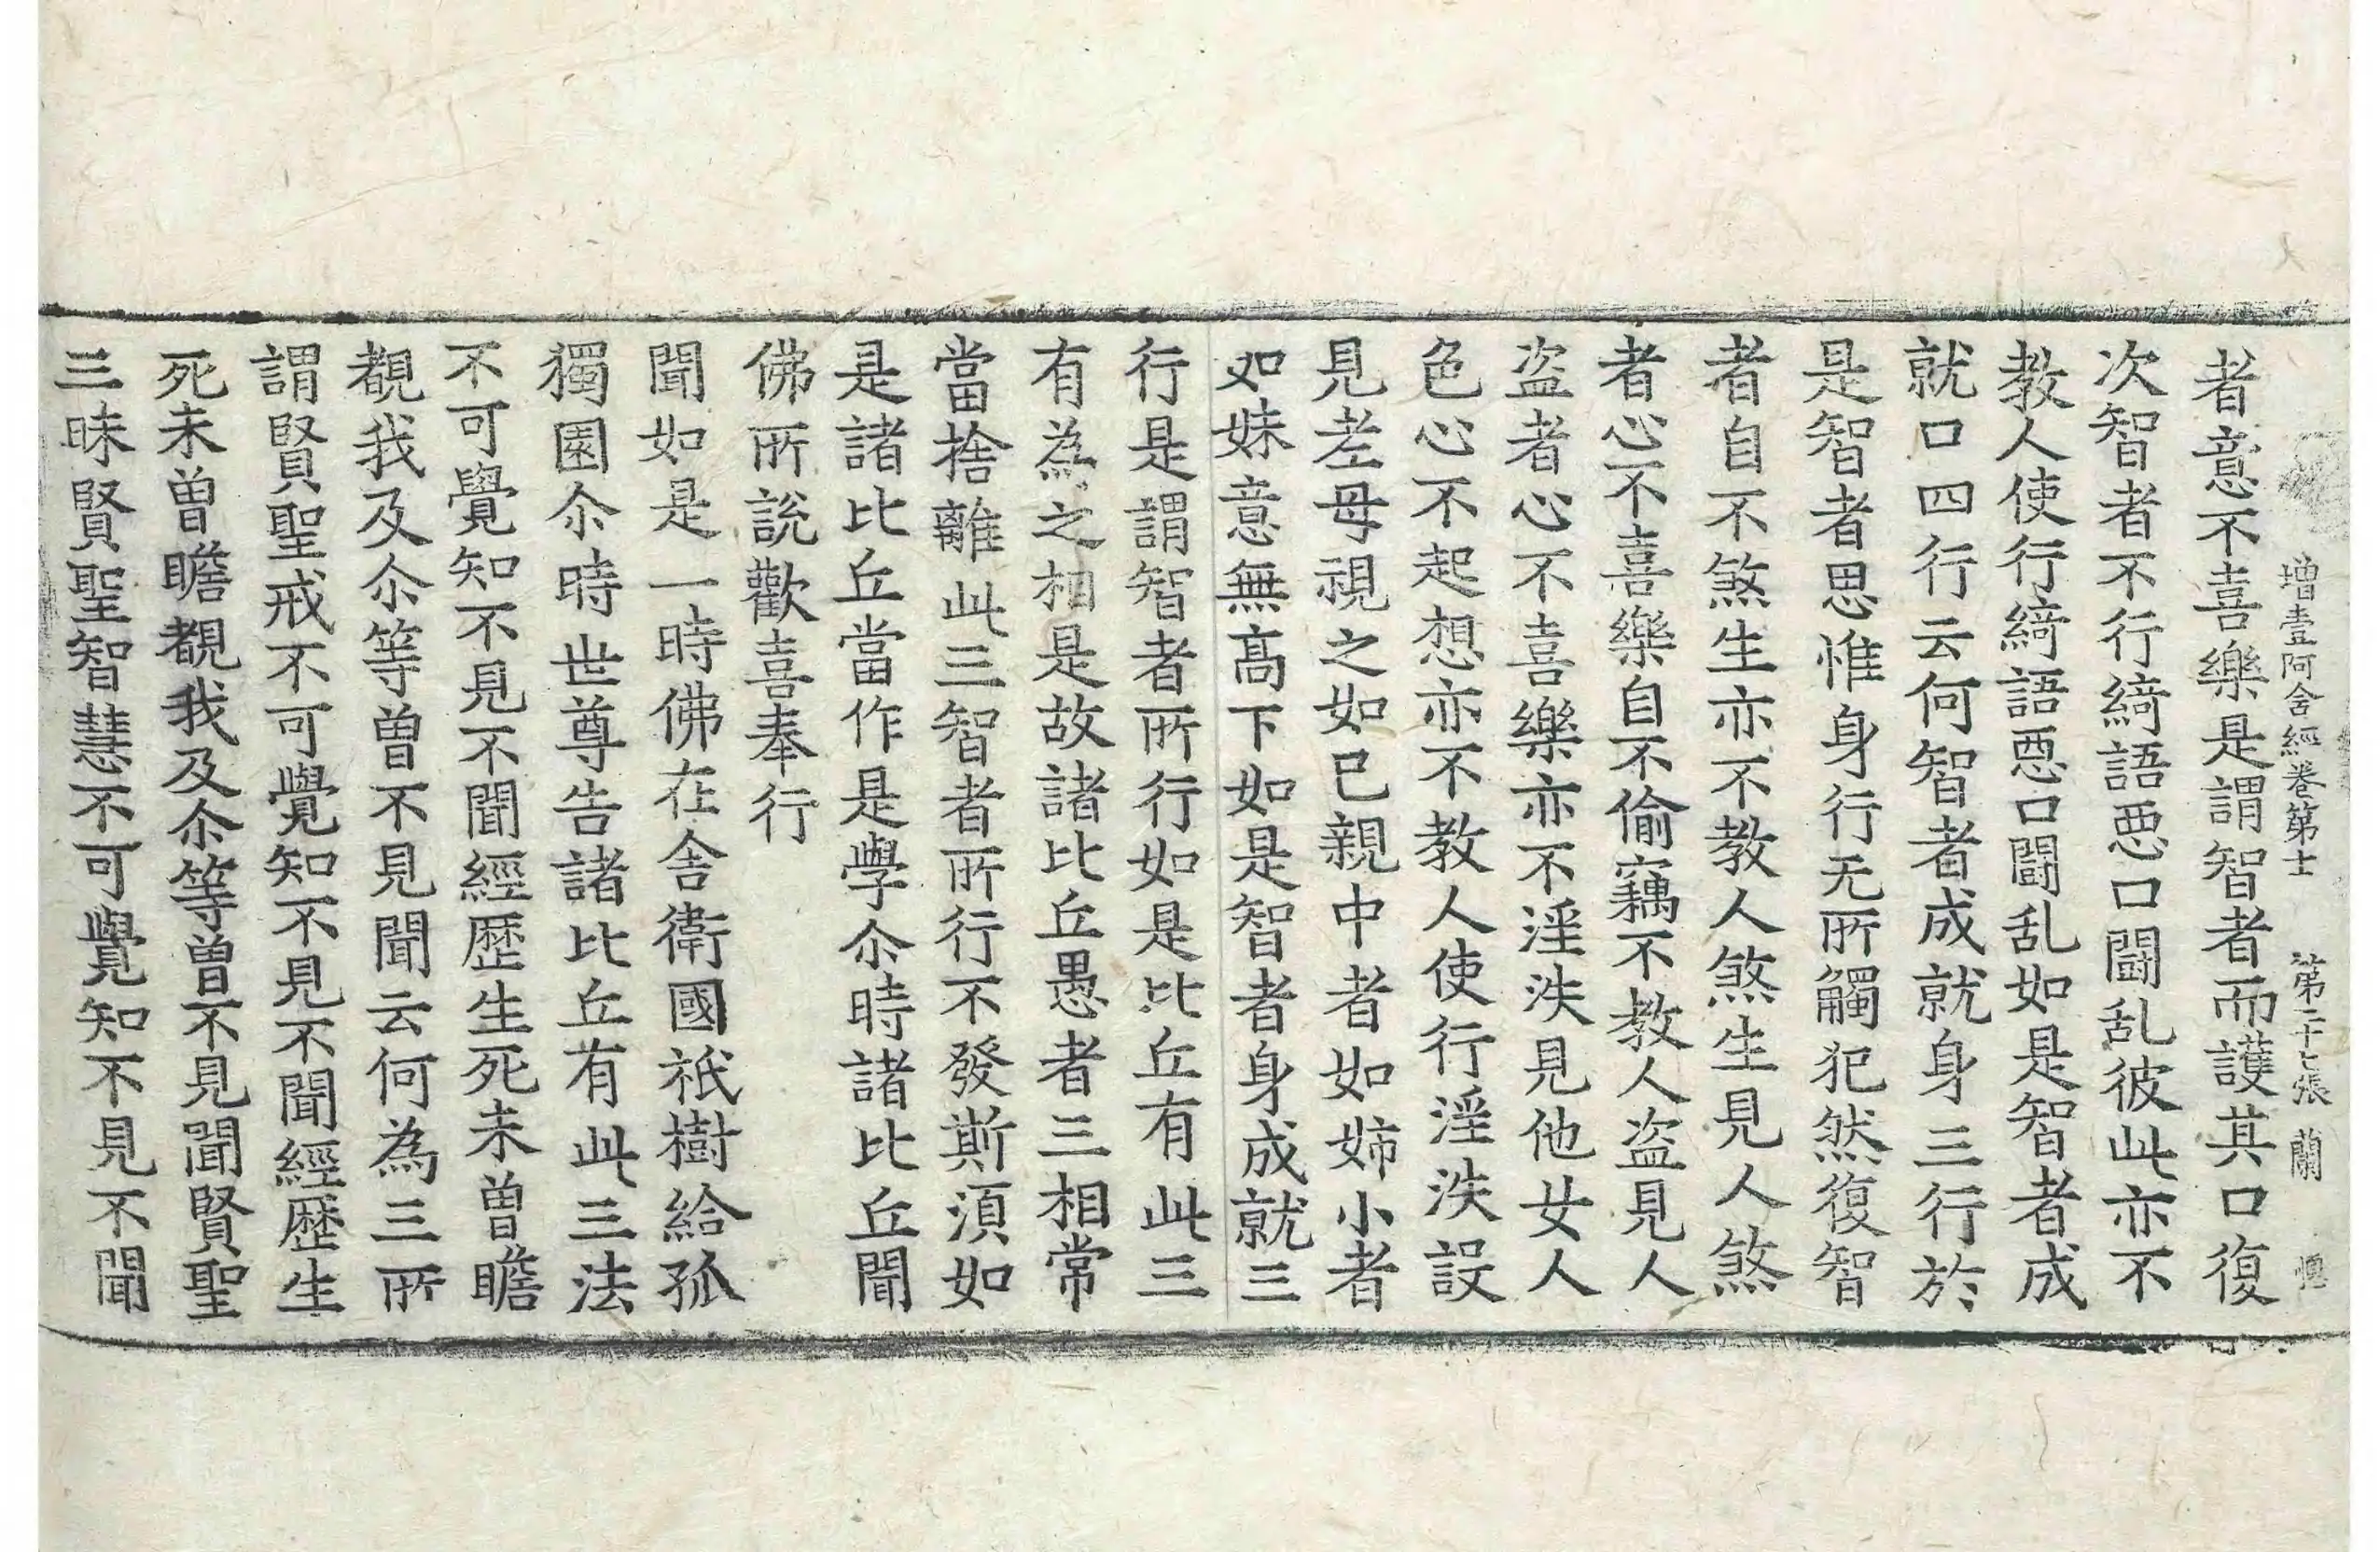 增壹阿含經卷第十二 第二十七張 蘭
者意不喜樂是謂智者而護其口復
次智者不行綺語惡口鬪乱彼此亦不
教人使行綺語惡口鬪乱如是智者成
就口四行云何智者成就身三行於
是智者思惟身行无所觸犯然復智
者自不煞生亦不教人煞生見人煞
者心不喜樂自不偷竊不教人盜見人
盜者心不喜樂亦不淫泆見他女人
色心不起想亦不教人使行淫泆設
見老母視之如己親中者如姉小者
如妹意無高下如是智者身成就三
行是謂智者所行如是比丘有此三
有為之相是故諸比丘愚者三相常
當捨離此三智者所行不發斯須如
是諸比丘當作是學尒時諸比丘聞
佛所說歡喜奉行
聞如是一時佛在舍衛國祇樹給孤
獨園尒時世尊告諸比丘有此三法
不可覺知不見不聞經歷生死未曾瞻
覩我及尒等曾不見聞云何為三所
謂賢聖戒不可覺知不見不聞經歷生
死未曾瞻覩我及尒等曾不見聞賢聖
三昧賢聖智慧不可覺知不見不聞